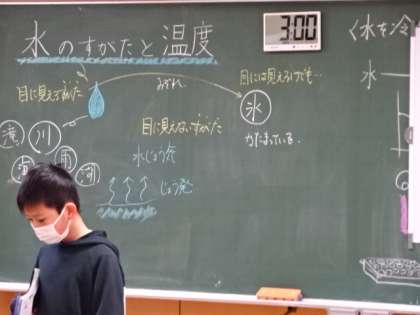 水のすがたと温度
3:00
く水を冷
目に見えるすがた
みぞれ
目には見えるけども…
氷
水
目に見えないすがた
かたまっている。
滝
川
海
雨
水じょう気
じょう発